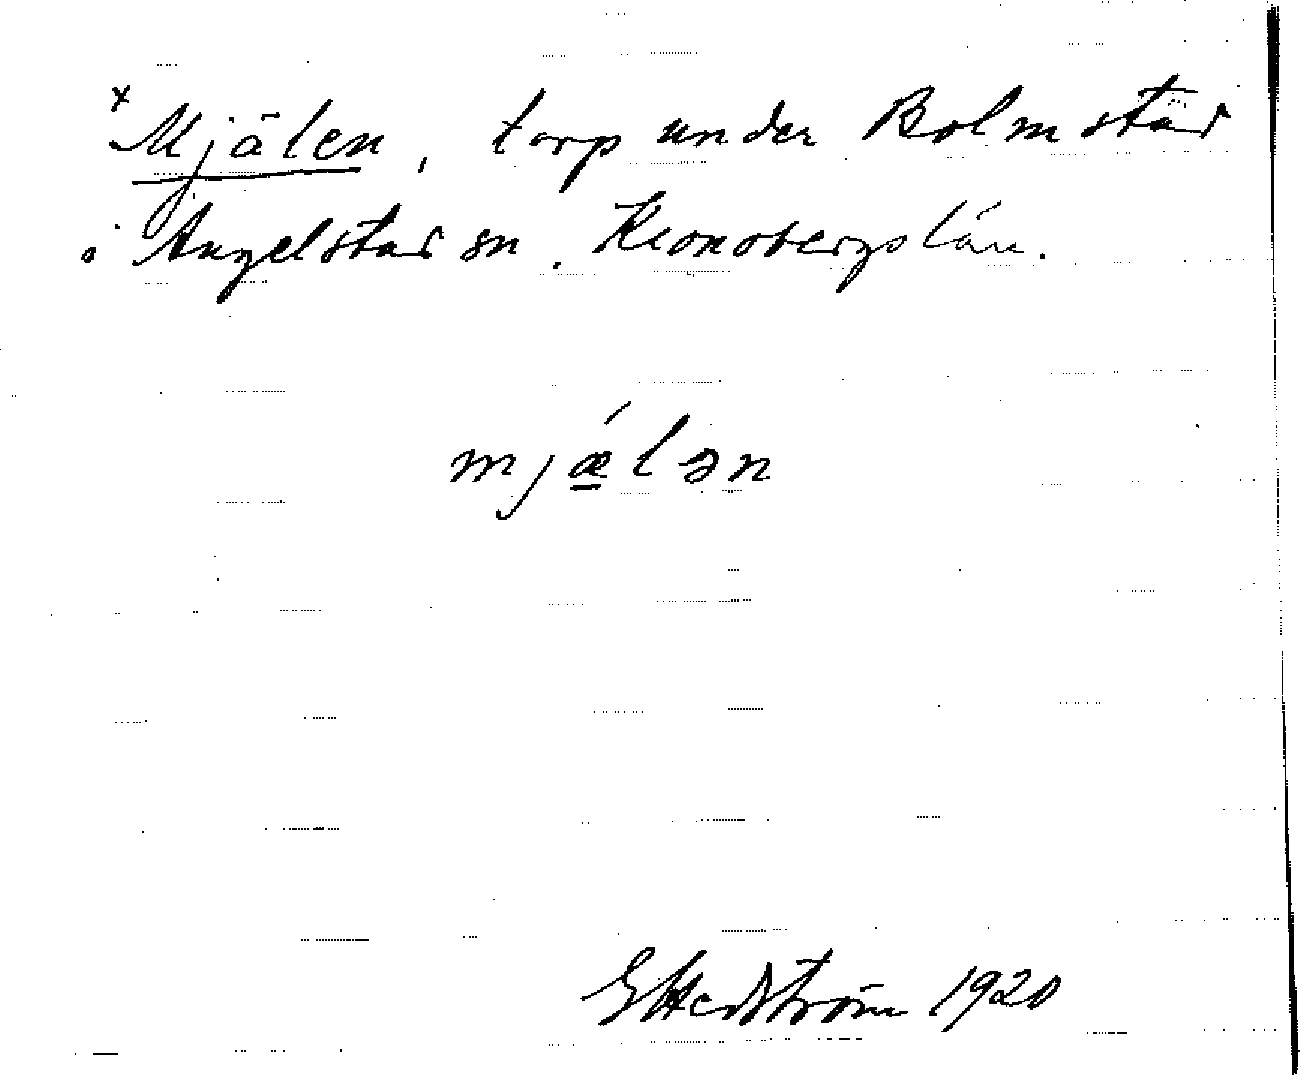 x Mjälen, torp under Bolmstad
i Angelstad sn. Kronobergs län.
mjǽlən
E Hedström 1920